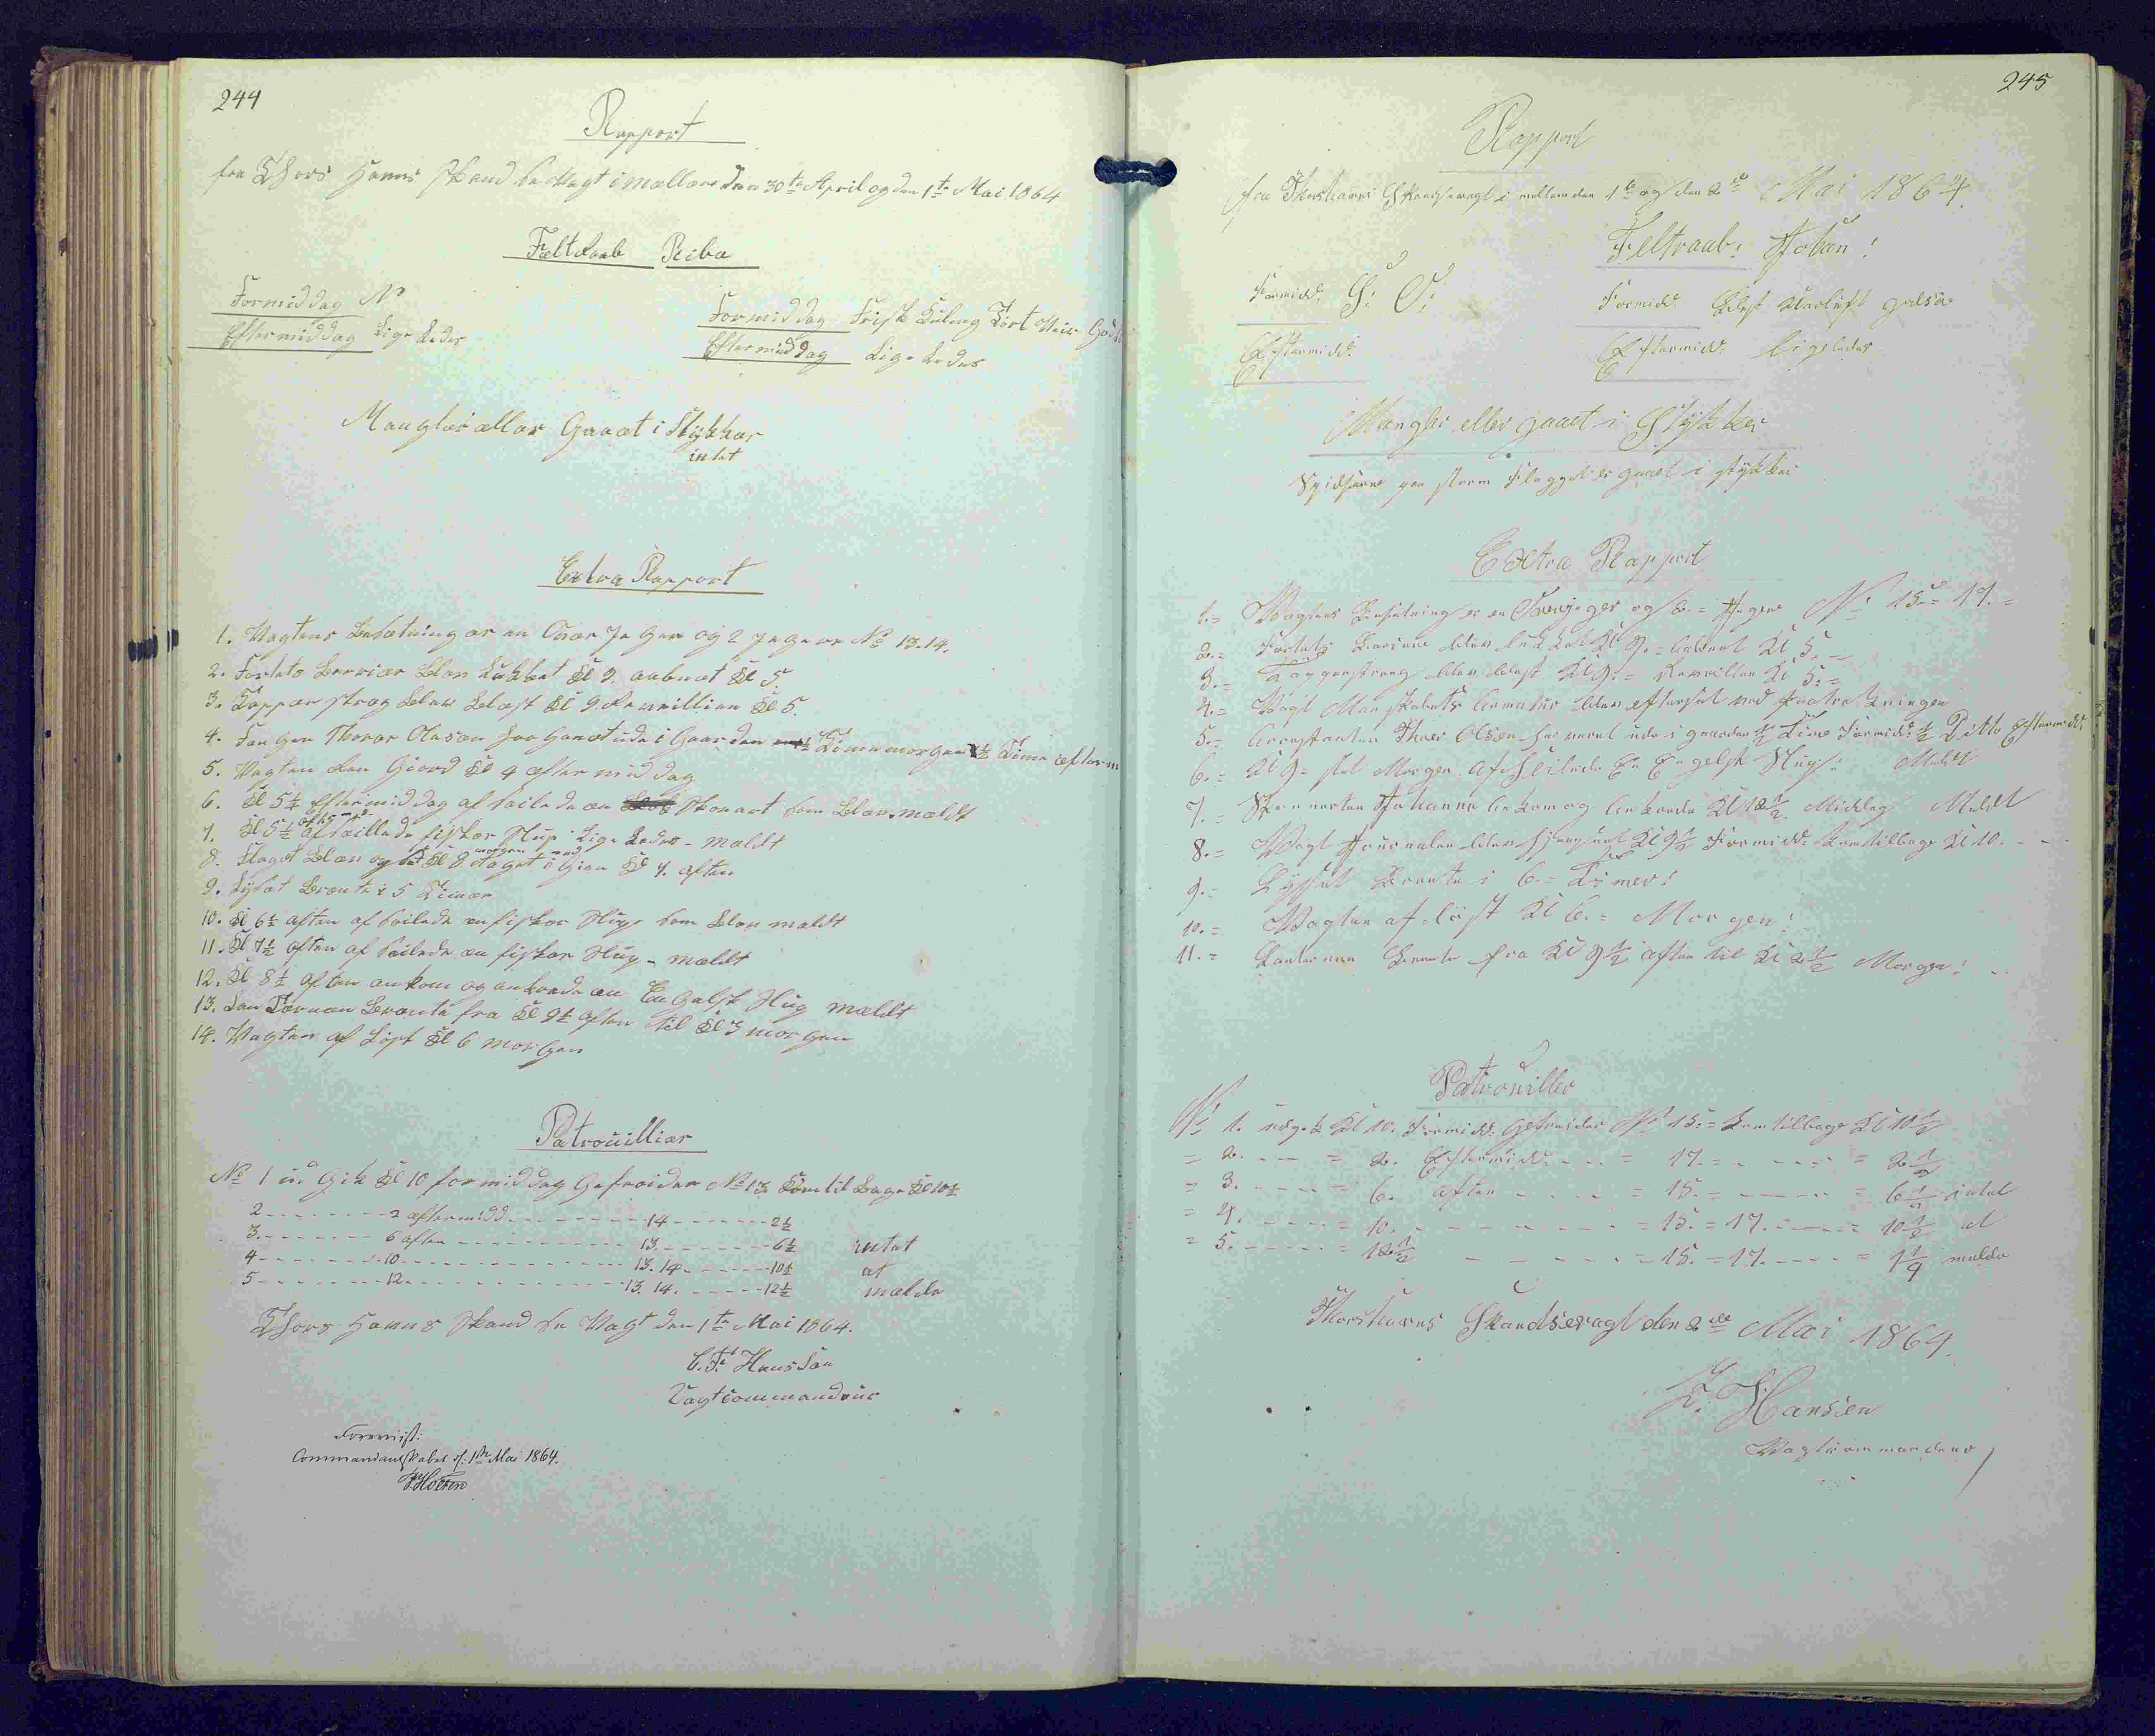 244
Rapport
fra Thors Havns Skandse Vagt imællem den 30te April og den 1te Mai 1864
Feltraab Ribe
Formiddag N
Eftermiddag Lige Ledes
Formiddag Frisk Kuling Tört Veir God
Eftermiddag Lige Ledes
Mangler eller Gaaet i Stykker
intet
Extra Rapport
1. Vagtens Besætning er en Over Jæger og 2 Jægere No 13. 14.
2. Fortets Barrier blev Lukket Kl 9. aabnet Kl 5.
3. Tappenstræg blev blæst Kl 9. Revellien Kl 5.
4. Fangen Thorer Olesen har Gaaet ude i Gaarden ½ Time morgen ½ Time efterm
5. Vagten blev Giord Kl 4 eftermiddag
6. Kl 5½ Eftermiddag afseilede en Skonnert som blev meldt
7. Kl 5½ afseillede fisker Slup Lige Ledes - meldt
8. Flaget blev op Kl 8 morgen taget i Gien Kl 7. aften
9. Lyset brænte i 5 Timer
10. Kl 6½ aften af seilede en fisker Slup som blev meldt
11. Kl 7½ aften af seilede en fisker Slup - meldt
12. Kl 8½ aften ankom og ankrede en Engelsk Slup meldt
13. Lanternen Brænte fra Kl 9½ aften til Kl 3 morgen
14. Vagten af Löst Kl 6 morgen
Patrouillier
No 1 ud Gik Kl 10 formiddag Gefreider No 13 Kom til Bage Kl 10½
2 - - - 2 eftermidd - - - 14 - - - 2½
3. - - - 6 aften - - - 13. - - - 6½ intet
4 - - - 10 - - - 13. 14. - - - 10½ at
5 - - - 12 - - - 13. 14. - - - 12½ melde
Thors Havns Skandse Vagt den 1te Mai 1864.
Hanssen
Vagtcommandeur
Foreviist:
Commandantskabet d. 1ste Mai 1864.
245
Rapport
fra Thorshavns Skandsevagt i mellem den 1te og den 2de Mai 1864.
Feltraab: Johan!
Formidd. S: O:
Eftermidd.
Formidd. Blæst Klarluft godsöe
Eftermidd. ligeledes
Mangler eller gaaet i Stykker
Spidserne paa storm Flagget er gaaet i stykker
Extra Rapport
1. = Vagtens Besætning er en Overjæger og 2. = Jægere No 15. = 17. =
2. = Fortets Bariere blev lukket Kl 9. = aabnet Kl 5. =
3. = Tappenstreg blev blæst Kl 9. = Revellien Kl 5. =
4. = Vagt Mandskabets Armatur blev efterset ved Fratrækningen
5. = Arrestanten Thorer Olsen har været ude i gaarden ½ Time Formidd: ½ Ditto Eftermidd:
6. = Kl 9 = slet Morgen afseilede En Engelsk Slup! Meldt
7. = Skonnerten Johanne ankom og ankrede Kl 12½ Middag Meldt
8. = Vagt Journalen blev hjemsent Kl 9½ Formidd: kom tilbage Kl 10. - - -
9. = Lysset Brænte i 6. = Timer!
10. = Vagten aflöst Kl 6. = Morgen!
11. = Lanternen Brænte fra Kl 9½ aften til Kl 2½ Morgen! - -
Patrouiller
No 1. udgik Kl 10. Formidd: Gefreider No 15. = kom tilbage Kl 10½
= 2. - - - = 2. Eftermidd. - - - = 17. = - - - = 2½
= 3. - - - = 6. aften - - - = 15. = - - - = 6½ intet
= 4. - - - = 10. - - - = 15. = 17. - - - = 10½ at
= 5. - - - = 12½ - - - = 15. = 17. - - - = 1¼ melde
Thorshavns Skandsevagt den 2de Mai 1864.
Hansen
Vagtcommandeur